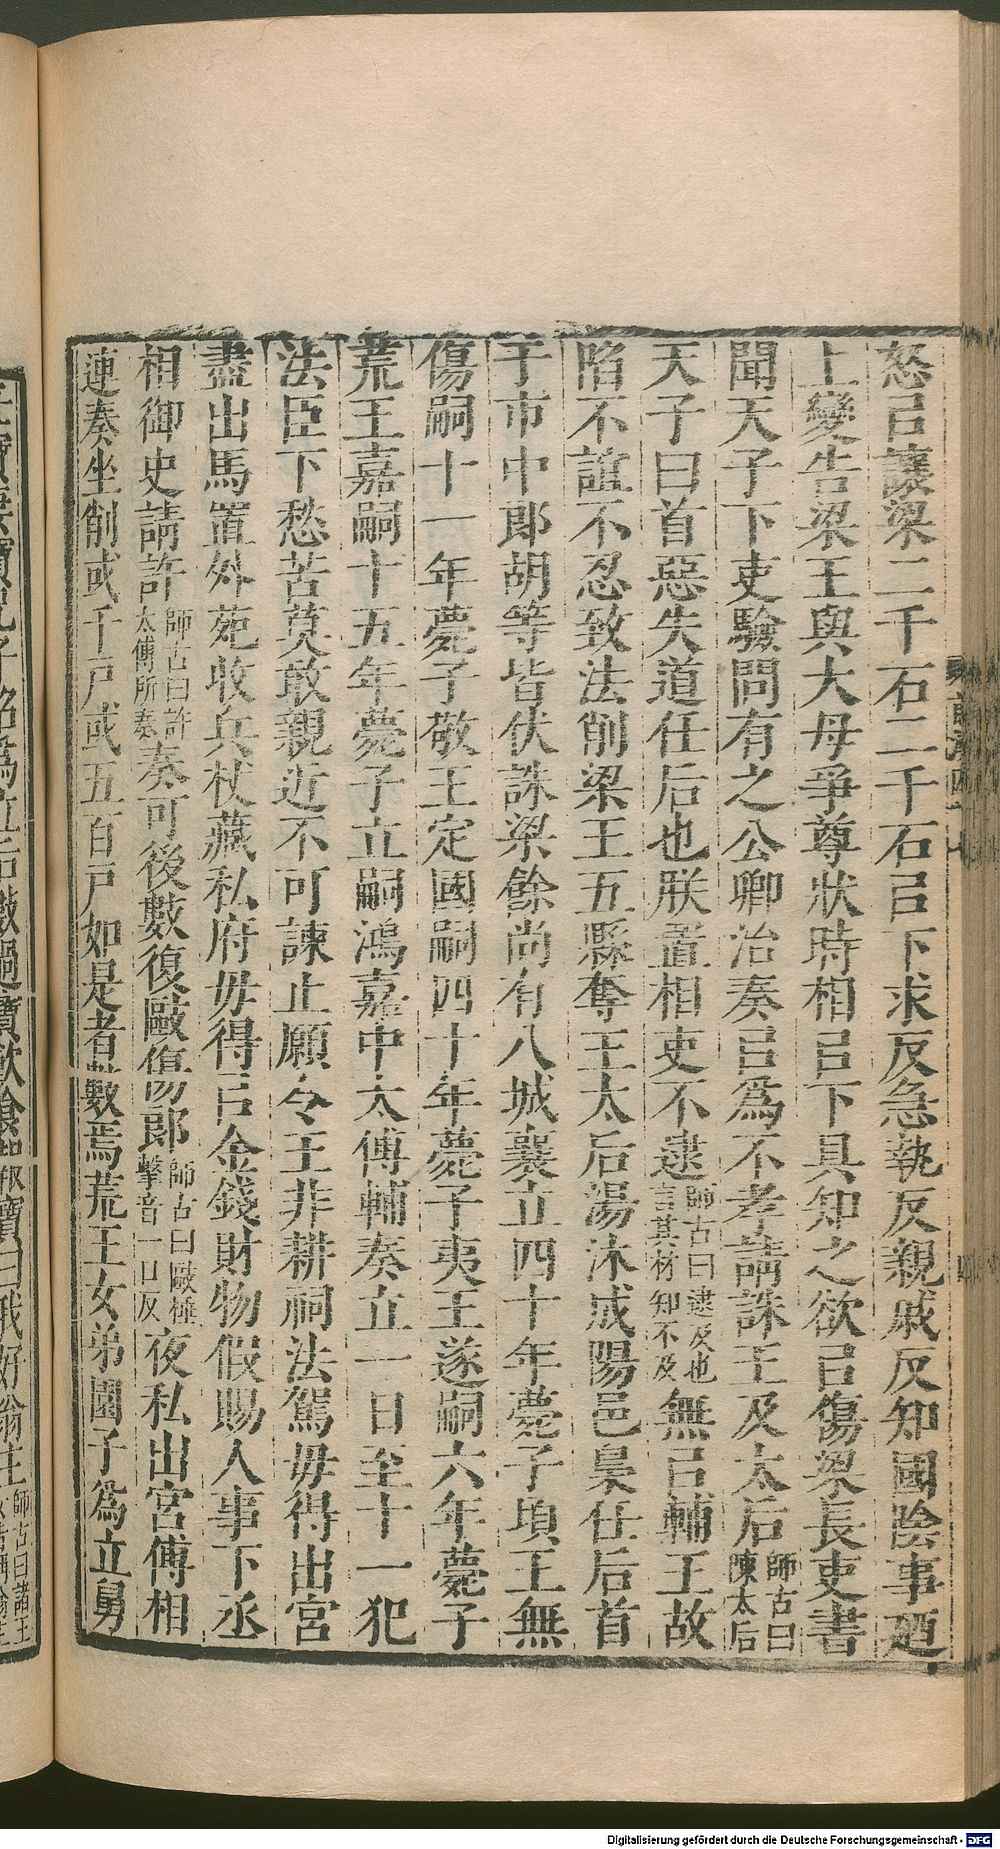 怒㠯讓梁二千石二千石㠯下求反急執反親戚反知國陰事廼
上變告梁王與大母爭尊狀時相㠯下具知之欲㠯傷梁長吏書
聞天子下吏驗問有之公卿治奏㠯爲不孝請誅王及太后師古曰陳太后
天子曰首惡失道任后也朕置相吏不逮師古曰逮及也言其材知不及無㠯輔王故
陷不誼不忍致法削梁王五縣奪王太后湯沐成陽邑梟任后首
于市中郎胡等皆伏誅梁餘尚有八城襄立四十年薨子頃王無
傷嗣十一年薨子敬王定國嗣四十年薨子夷王遂嗣六年薨子
荒王嘉嗣十五年薨子立嗣鴻嘉中太傅輔奏立一日至十一犯
法臣下愁苦莫敢親近不可諫止願令王非耕祠法駕毋得出宮
盡出馬置外苑收兵杖藏私府毋得㠯金錢財物假賜人事下丞
相御史請許師古曰許太傅所奏奏可後數復毆傷郎師古曰毆捶擊音一口反夜私出宮傅相
連奏坐削或千戶或五百戶如是者數焉荒王女弟園子爲立舅
Digitalisierung gefördert durch die Deutsche Forschungsgemeinschaft - DFG